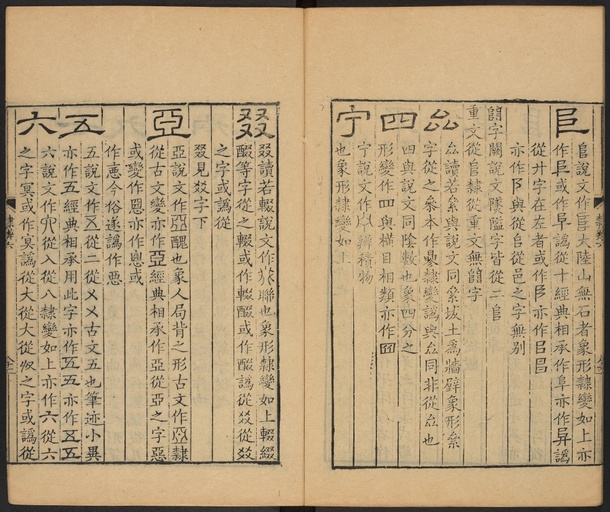 𨸏
𨸏說文作𨸏大陸山無石者象形隸變如上亦
作𨸏或作阜譌從十經典相承作阜亦作譌
從廾字在左者或作阝亦作
亦作阝與從𨸏從邑之字無別
𨺅字闕說文隊隘字皆從二𨸏
重文從𨸏隸從重文無字
厽
厽讀若絫與說文同絫坺土為牆壁象形絫
字從之參本作曑隸變譌與厽同非從厽也
四
四與說文同陰數也象四分之
形變作四與橫目相類亦作
宁
宁說文作辨積物
也象形隸變如上
叕
叕讀若輟說文作聯也象形隸變如上輟綴
醊等字從之輟或作輟醊或作醊譌從叕從
之字或譌從
叕見㸚字下
亞
亞說文作亞醜也象人局背之形古文作亞隸
從古文變亦作亞經典相承作亞從亞之字惡
或變作𢙣亦作悪或
作𢙣今俗遂譌作惡
五
五說文作五從二從㐅㐅古文五也筆迹小異
亦作五經典相承用此字亦作五五亦作五五
六
六說文作從入從八隸變如上亦作六從六
之字冥或作㝠譌從大從大從之字或譌從